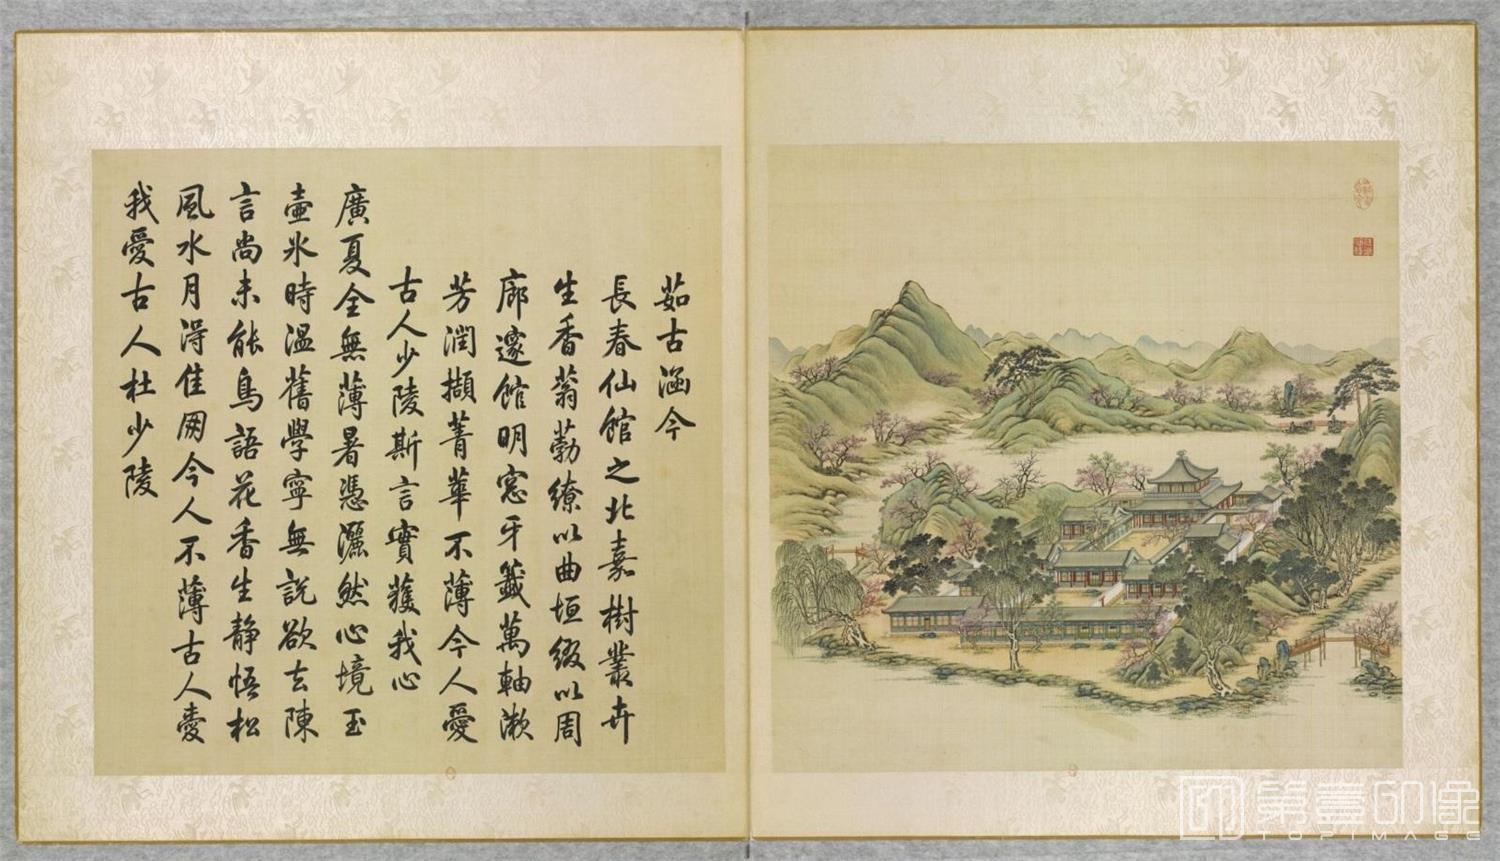 茹古涵今
長春仙館之北嘉樹叢卉
生香蓊葧繚以曲垣綴以周
廊邃館明窓牙籤萬軸漱
芳潤擷菁華不薄今人愛
古人少陵斯言實獲我心
廣夏全無薄暑憑灑然心境玉
壺氷時温舊學寧無說欲去陳
言尚未能鳥語花香生静悟松
風水月淂佳朋今人不薄古人愛
我愛古人杜少陵
第壹印像
TOPIMAGE